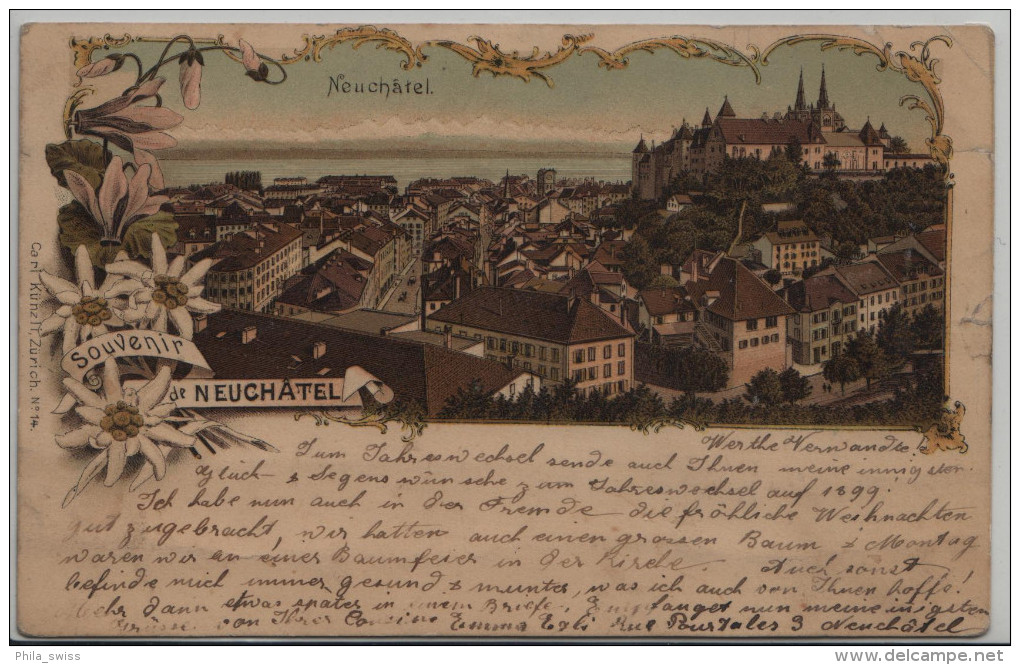 Neuchâtel.
Souvenir
de NEUCHÂTEL
Carl Künzli, Zürich. No 14.
Werthe Verwandte.
Zum Jahreswechsel sende auch Ihnen meine innigsten
Glück- & Segenswünsche zum Jahreswechsel auf 1899.
Ich habe nun auch in der Fremde die fröhliche Weihnachten
gut zugebracht, wir hatten auch einen grossen Baum & Montag
waren wir an einer Baumfeier in der Kirche. Auch sonst
befinde mich immer gesund & munter, was ich auch von Ihnen hoffe!
Mehr dann etwas später in einem Briefe. Empfanget nun meine inigsten
Grüsse von Ihrer Cousine Emma Egli Rue Pourtales 3 Neuchâtel
Phila_swiss
www.delcampe.net